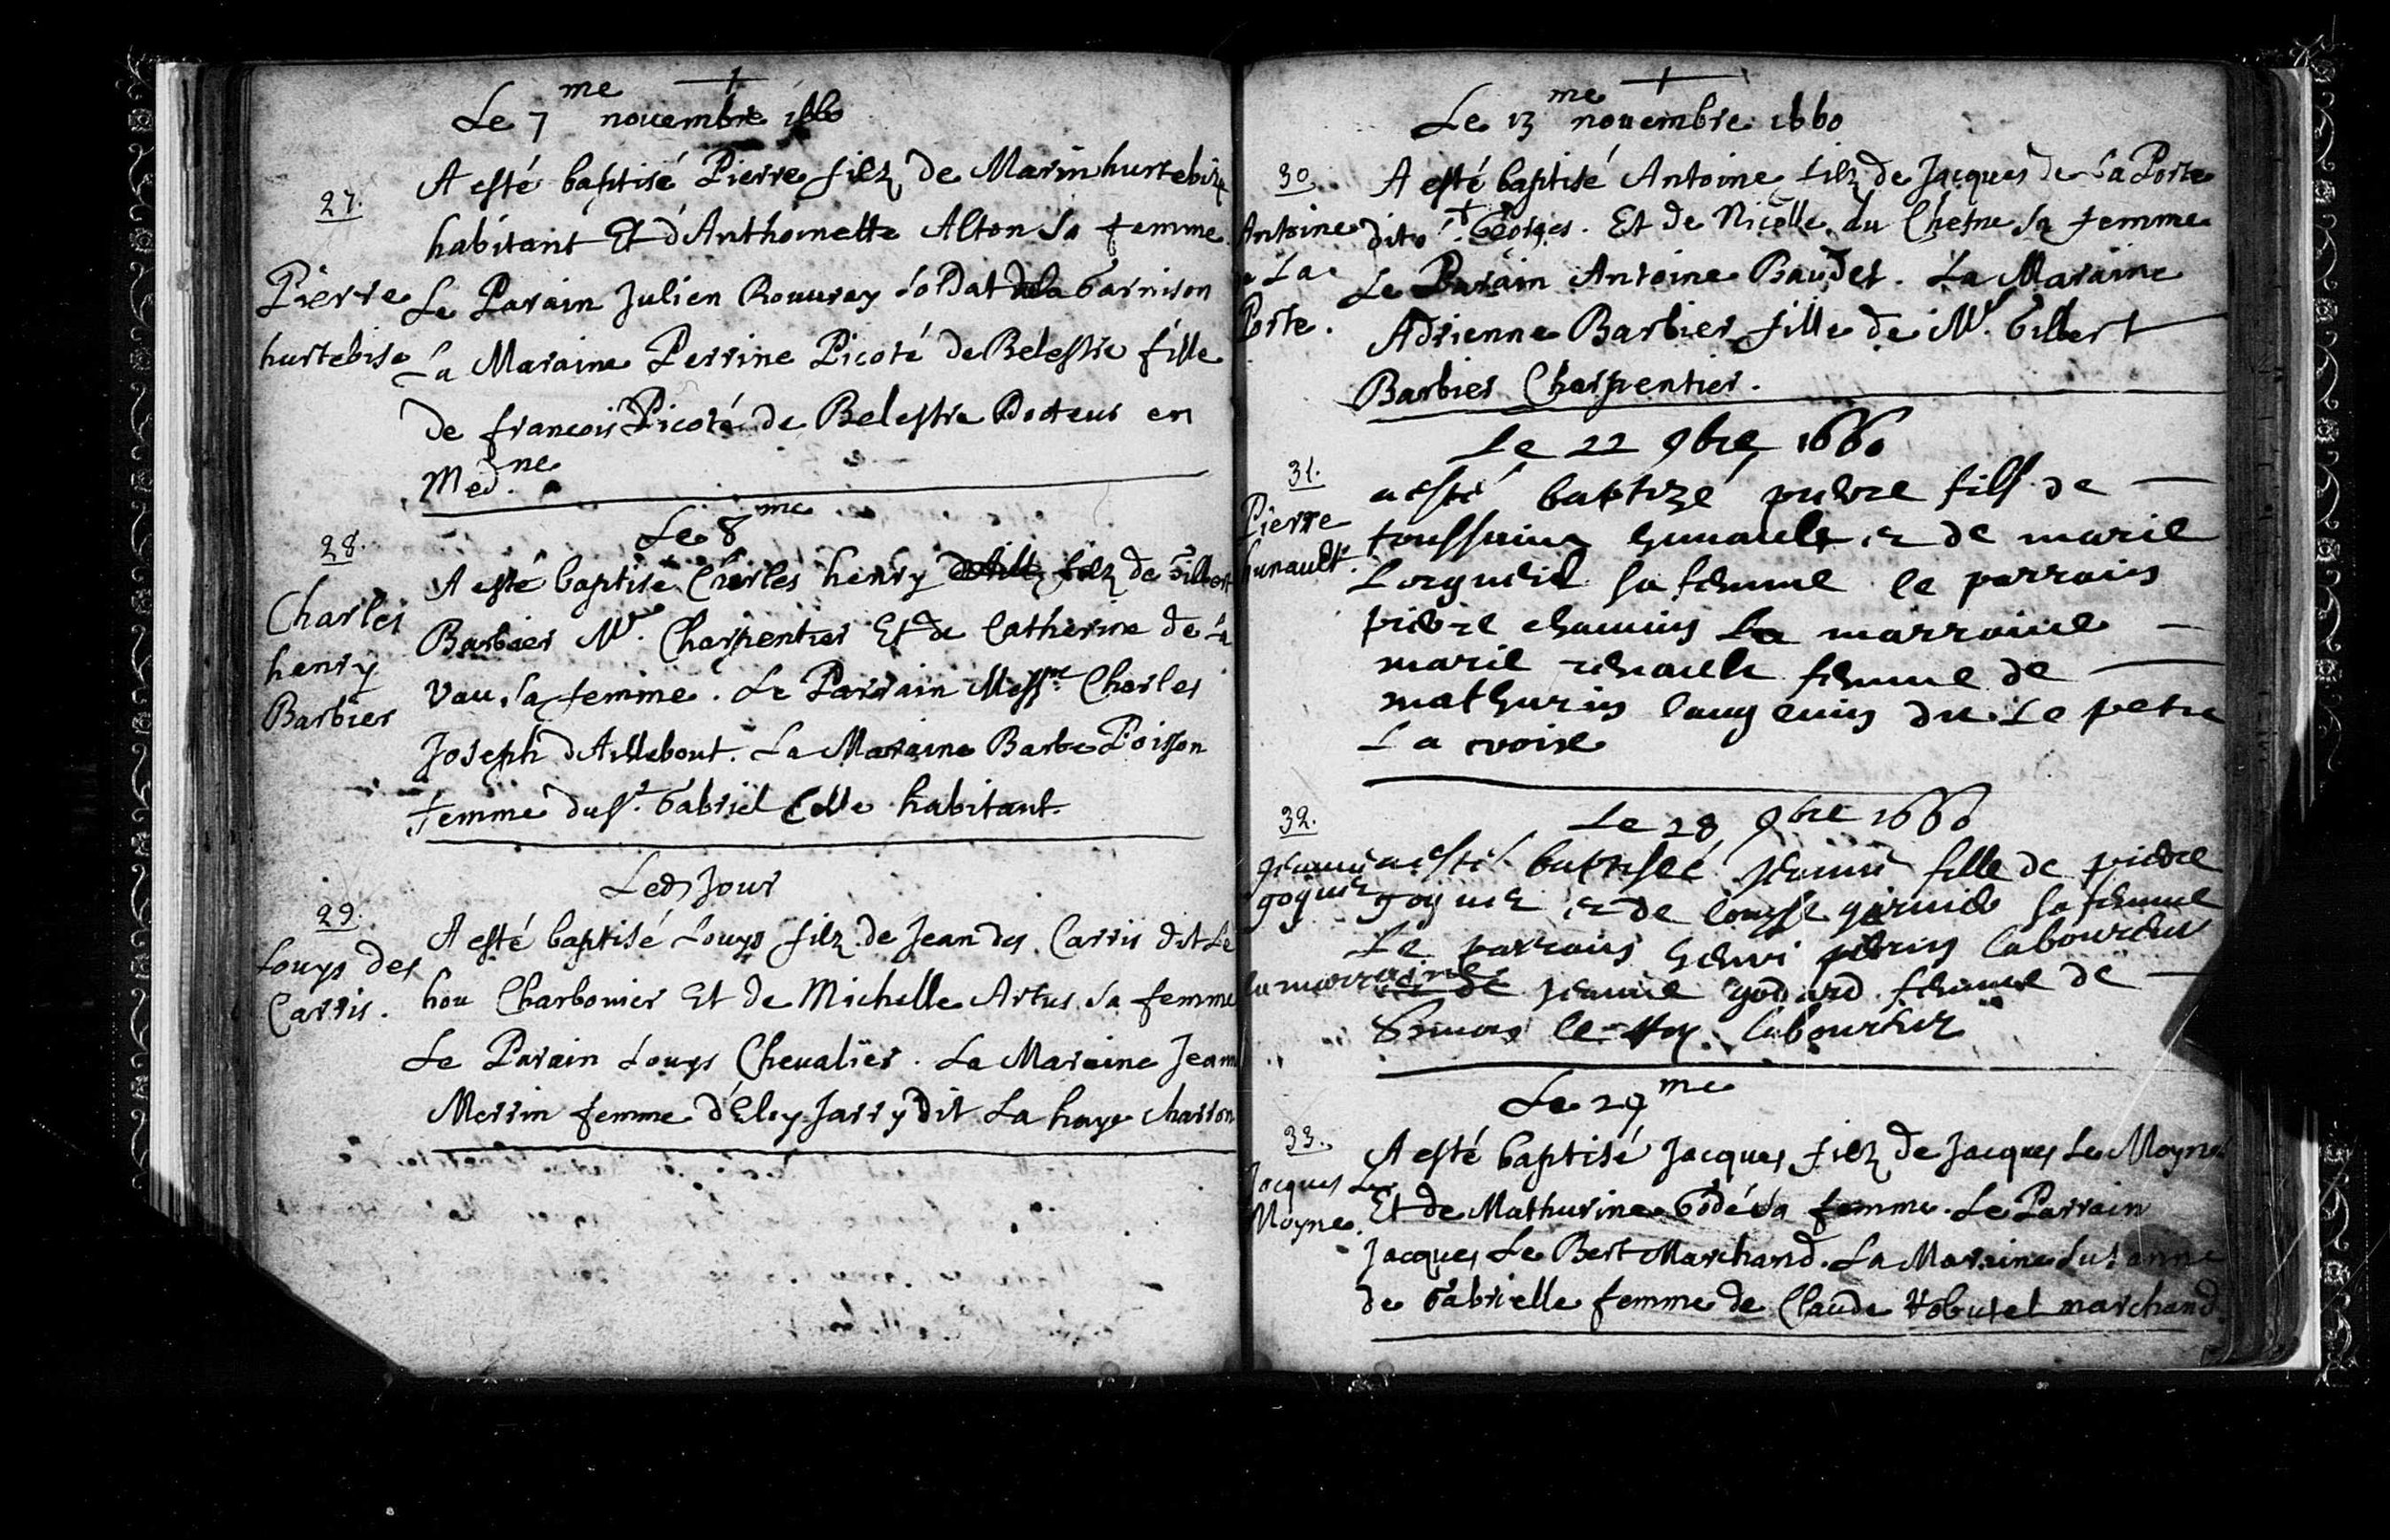 Le 7me novembre 1660
27.
A esté baptisé Pierre filz de Marin hurtebize
habitant Et d'Anthoinette Alton sa femme
Pierre
Le Parain Julien Rouuray soldat de la Garnison
hurtebise
La Maraine Perrine Picoté de Belestre fille
de francois Picoté de Belestre Docteur en
Med.ne
Le 8me
28.
Charles
henry
Barbier
A esté baptisé Charles henry filz de Gilbert
Barbier Mr. Charpentier Et de Catherine de La
Vau sa femme. Le Parrain Messre Charles
Joseph d'Aillebout. La Maraine Barbe Poisson
femme du sr. Gabriel Celle habitant.
Led Jour
29.
Louys des
Carris.
A esté baptisé Louys filz de Jean des Carris dit Le
hou Charbonier Et de Michelle Artus sa femme
Le Parain Louys Cheualier. La Maraine Jeanne
Merrin femme d'Eloy Jarry dit La haye charron
Le 13me nouembre 1660
30.
Antoine
de La
Porte.
A esté baptisé Antoine filz de Jacques de La Porte
dit St. Georges. Et de Nicolle du Chesne sa femme
Le Parain Antoine Baudet. La Maraine
Adrienne Barbier fille de Mr. Gilbert
Barbier Charpentier.
Le 22 9bre 1660
31.
Pierre
hunault.
a esté baptizé pierre fils de
toussains hunault et de marie
Lorgueil sa femme le parrain
pierre chauuin La marraine
marie renault femme de
mathurin langeuin dit Le petit
La croix
Le 28 9bre 1660
32.
Jeanne
goguet
a esté baptisée Jeanne fille de pierre
goguet et de louyse garnier sa femme
Le parrain henri perrin laboureur
la marraine Jeanne godard femme de
Simon le Roy laboureur
Le 29me
33.
Jacques Le
Moyne.
A esté baptisé Jacques filz de Jacques Le Moyne
Et de Mathurine Godé sa femme. Le Parrain
Jacques Le Bert Marchand. La Maraine Suzanne
de Gabrielle femme de Claude Robutel marchand.